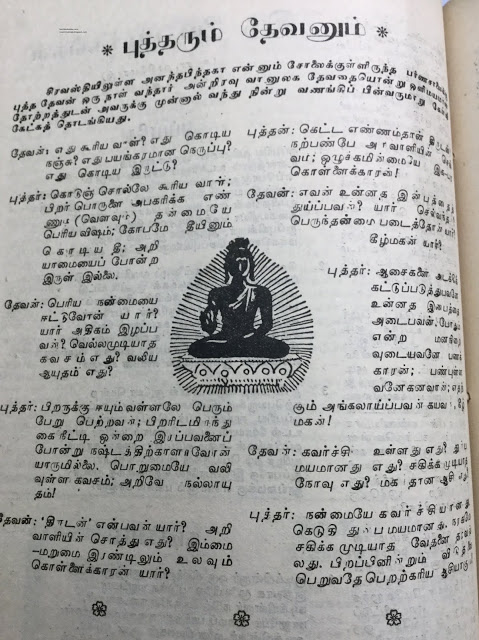 * புத்தரும் தேவனும் *
சிரவஸ்தியிலுள்ள அனந்தபிந்தகா என்னும் சோலைக்குளிருந்த பர்ணசாலை
புத்த தேவன் ஒரு நாள் வந்தார் அன்றிரவு வானுலக தேவதையொன்று ஒளிமயமா
தோற்றத்துடன் அவருக்கு முன்னால் வந்து நின்று வணங்கிப் பின்வருமாறு
கேட்கத் தொடங்கியது.
தேவன்: எது கூரிய வாள்? எது கொடிய
நஞ்சு? எது பயங்கரமான நெருப்பு?
எது கொடிய இருட்டு?
புத்தர்: கொடுஞ் சொல்லே கூரிய வாள்;
பிறர் பொருளை அபகரிக்க எண்
ணும் (வெளவும்) தன்மையே
பெரிய விஷம்; கோபமே தீயினும்
கொடிய தீ; அறி
யாமையைப் போன்ற
இருள் இல்லை.
தேவன்: பெரிய நன்மையை
ஈட்டுவோன் யார்?
யார் அதிகம் இழப்ப
வன்? வெல்லமுடியாத
கவசம் எது? வலிய
ஆயுதம் எது?
புத்தர்: பிறருக்கு ஈயும் வள்ளலே பெரும்
பேறு பெற்றவன்; பிறரிடமிருந்து
கை நீட்டி ஒன்றை இரப்பவனைப்
போன்று நஷ்டத்திற்காளாவோன்
யாருமில்லை. பொறுமையே வலி
வுள்ள கவசம்; அறிவே நல்லாயு
தம்!
தேவன்: 'திருடன்' என்பவன் யார்? அறி
வாளியின் சொத்து எது? இம்மை
–மறுமை இரண்டிலும் உலவும்
கொள்ளைக்காரன் யார்?
புத்தன்: கெட்ட எண்ணம்தான் திருடன்
நற்பண்பே அறிவாளியின்
ஒழுக்கமின்மையே
கொள்ளைக்காரன்!
தேவன்: எவன் உன்னத இன்பத்தை
துய்ப்பவன்? யார்
பெருந்தன்மை படைத்தோன்
கீழ்மகன் யார்?
புத்தர்: ஆசைகளை அடக்கி
கட்டுப்படுத்துபவனே
உன்னத இன்பத்தை
அடைபவன். போதும்
என்ற மனநிறை
வுடையவனே பணக்
காரன்; பண்புள்ள
வனே தனவான்;
கும் அங்கலாய்ப்பவன் கயவன்
மகன்!
தேவன்: கவர்ச்சி உள்ளது எது?
மயமானது எது? சகிக்க முடியாத
நோவு எது?
புத்தர்: நன்மையே கவர்ச்சியானது
கெடுதி துன்பமயமானது.
சகிக்க முடியாத வேதனை
லது. பிறப்பினின்றும்
பெறுவதே பெறற்கரிய